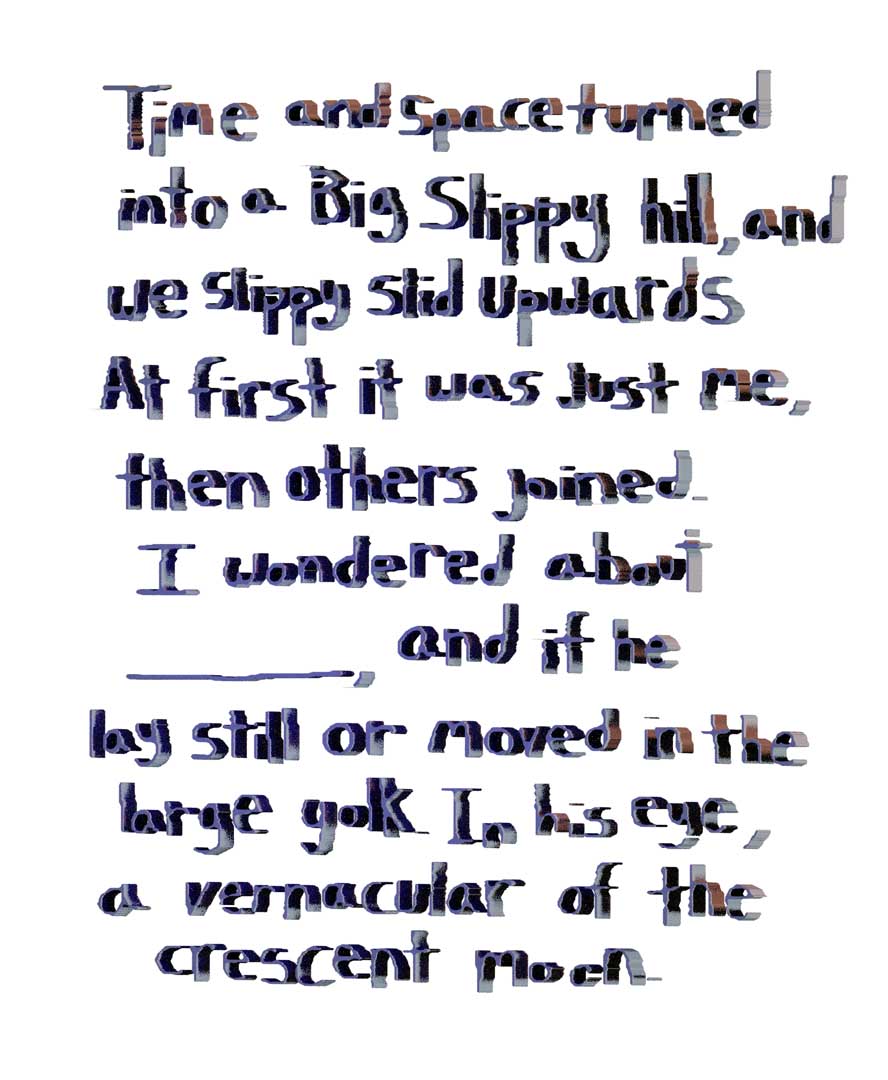 Time and space turned
into a Big Slippy hill, and
we slippy slid Upwards
At first it was Just me,
then others joined.
I wondered about
__________, and if he
lay still or moved in the
large yolk. In his eye,
a vernacular of the
crescent moon.